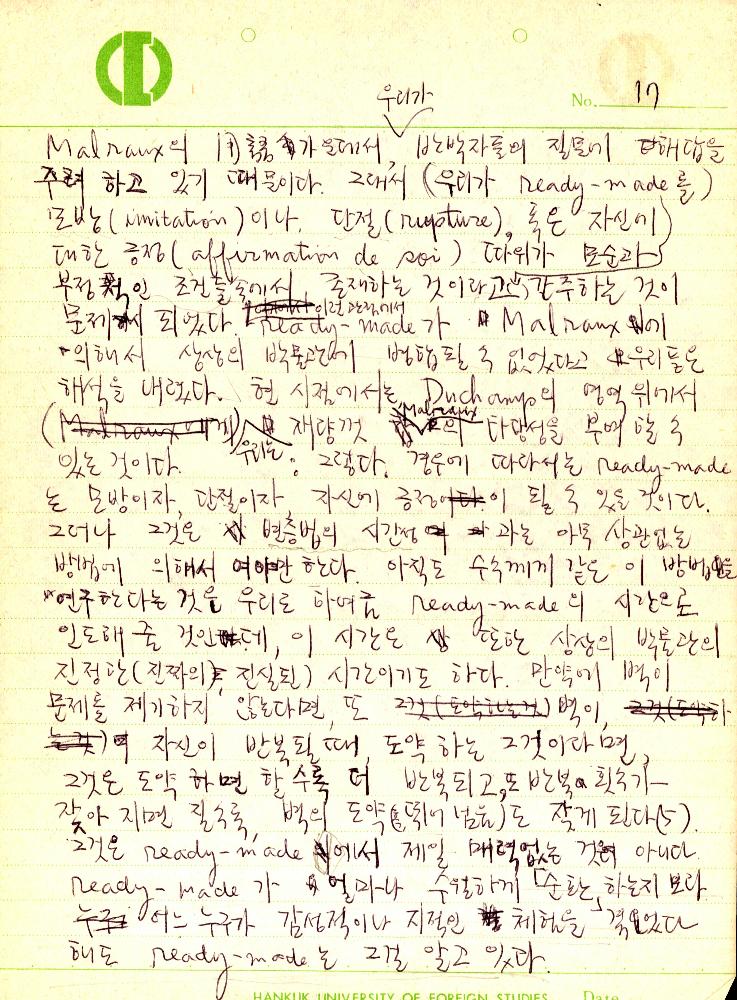 No. 17
우리가
Malraux의 用語 가운데서 반박자들의 질문에 대해답을
주려 하고 있기 때문이다. 그래서 (우리가 ready-made를)
모방(imitation)이나, 단절(rupture), 혹은 자신에
대한 긍정(affirmation de soi) 따위가 모순과
부정적인 조건들속에서 존재하는 것이라고 간주하는 것이
이런 관점에서
문제시 되었다. ready-made가 Malraux에
의해서 상상의 박물관에 병합될 수 있었다고 우리들은
해석을 내렸다. 현 시점에서는 Duchamp의 영역 위에서
Malraux
(Malraux에게) 재량껏 의 타당성을 부여 할 수
우리는
있는 것이다. 그렇다. 경우에 따라서는 ready-made
는 모방이자, 단절이자, 자신에 긍정이 될 수 있을 것이다.
그러나 그것은 변증법의 시간성과는 아무 상관없는
방법에 의해서 여야만 한다. 아직도 수수께끼 같은 이 방법을
연구한다는 것은 우리로 하여금 ready-made의 시간으로
인도해 줄 것인데, 이 시간은 또한 상상의 박물관의
진정한(진짜의, 진실된) 시간이기도 하다. 만약에 벽이
문제를 제기하지 않는다면, 또 벽이,
자신이 반복될 때, 도약 하는 그것이다면,
그것은 도약 하면 할 수록 더 반복되고,또 반복 횟수가
잦아 지면 질수록, 벽의 도약(뛰어 넘음)도 잦게 된다(5).
그것은 ready-made에서 제일 매력없는 것이 아니다.
ready-made가 얼마나 수월하게 「순환」하는지 보라
어느 누구가 감성적이나 지적인 체험을 겪었다
해도 ready-made는 그걸 알고 있다.
HANKUK UNIVERSITY OF FOREIGN STUDIES Date